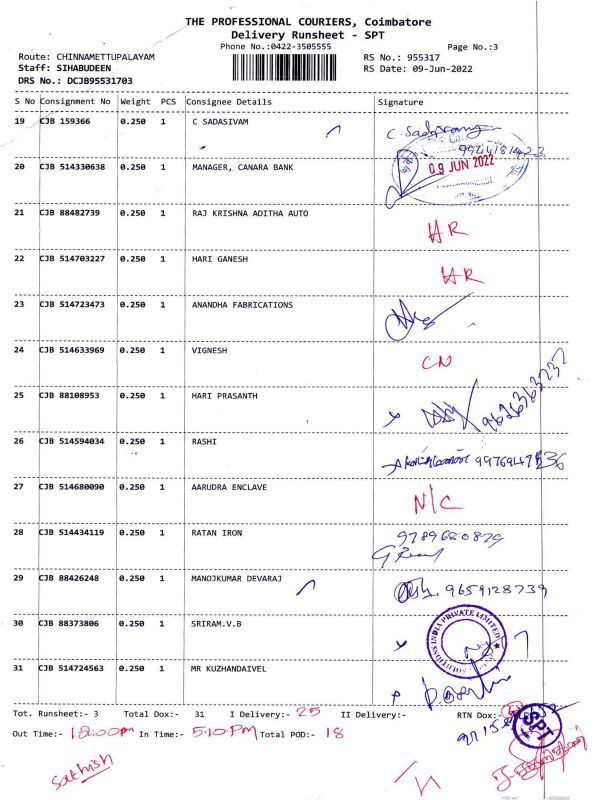 THE PROFESSIONAL COURIERS, Coimbatore
Delivery Runsheet - SPT
Phone No.:0422-3505555
Page No.:3
Route: CHINNAMETTUPALAYAM
RS No.: 955317
Staff: SIHABUDEEN
RS Date: 09-Jun-2022
DRS No.: DCJB95531703
S No Consignment No Weight PCS Consignee Details Signature
19 CJB 159366 0.250 1 C SADASIVAM
20 CJB 514330638 0.250 1 MANAGER, CANARA BANK 09 JUN 2022
21 CJB 88482739 0.250 1 RAJ KRISHNA ADITHA AUTO HR
22 CJB 514703227 0.250 1 HARI GANESH HR
23 CJB 514723473 0.250 1 ANANDHA FABRICATIONS
24 CJB 514633969 0.250 1 VIGNESH CN
25 CJB 88108953 0.250 1 HARI PRASANTH
26 CJB 514594034 0.250 1 RASHI
27 CJB 514680090 0.250 1 AARUDRA ENCLAVE N/C
28 CJB 514434119 0.250 1 RATAN IRON 9789680879
29 CJB 88426248 0.250 1 MANOJKUMAR DEVARAJ 9659128739
30 CJB 88373806 0.250 1 SRIRAM.V.B INDIA PRIVATE LIMITED
31 CJB 514724563 0.250 1 MR KUZHANDAIVEL
Tot. Runsheet:- 3 Total Dox:- 31 I Delivery:- 25 II Delivery:- RTN Dox:-
Out Time:- 12:00pm In Time:- 5:10.PM Total POD:- 18 SPT
Sathish